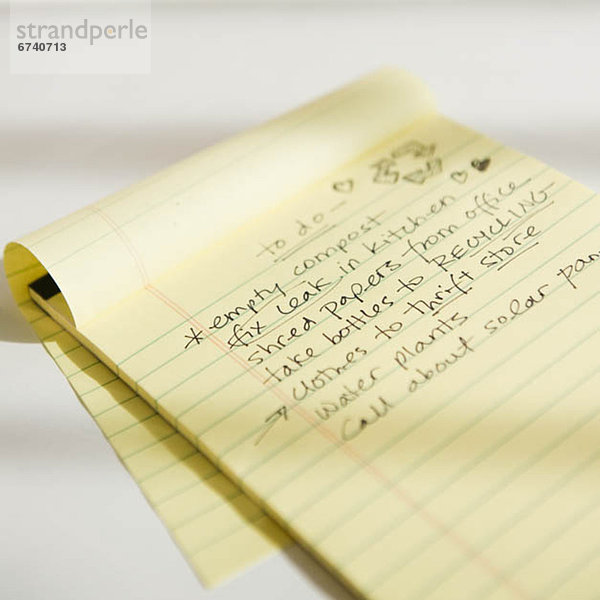 strandperle
6740713
to do -
* empty compost
fix leak in kitchen
shred papers from office
take bottles to RECYCLING
→ clothes to thrift store
water plants
call about solar pan